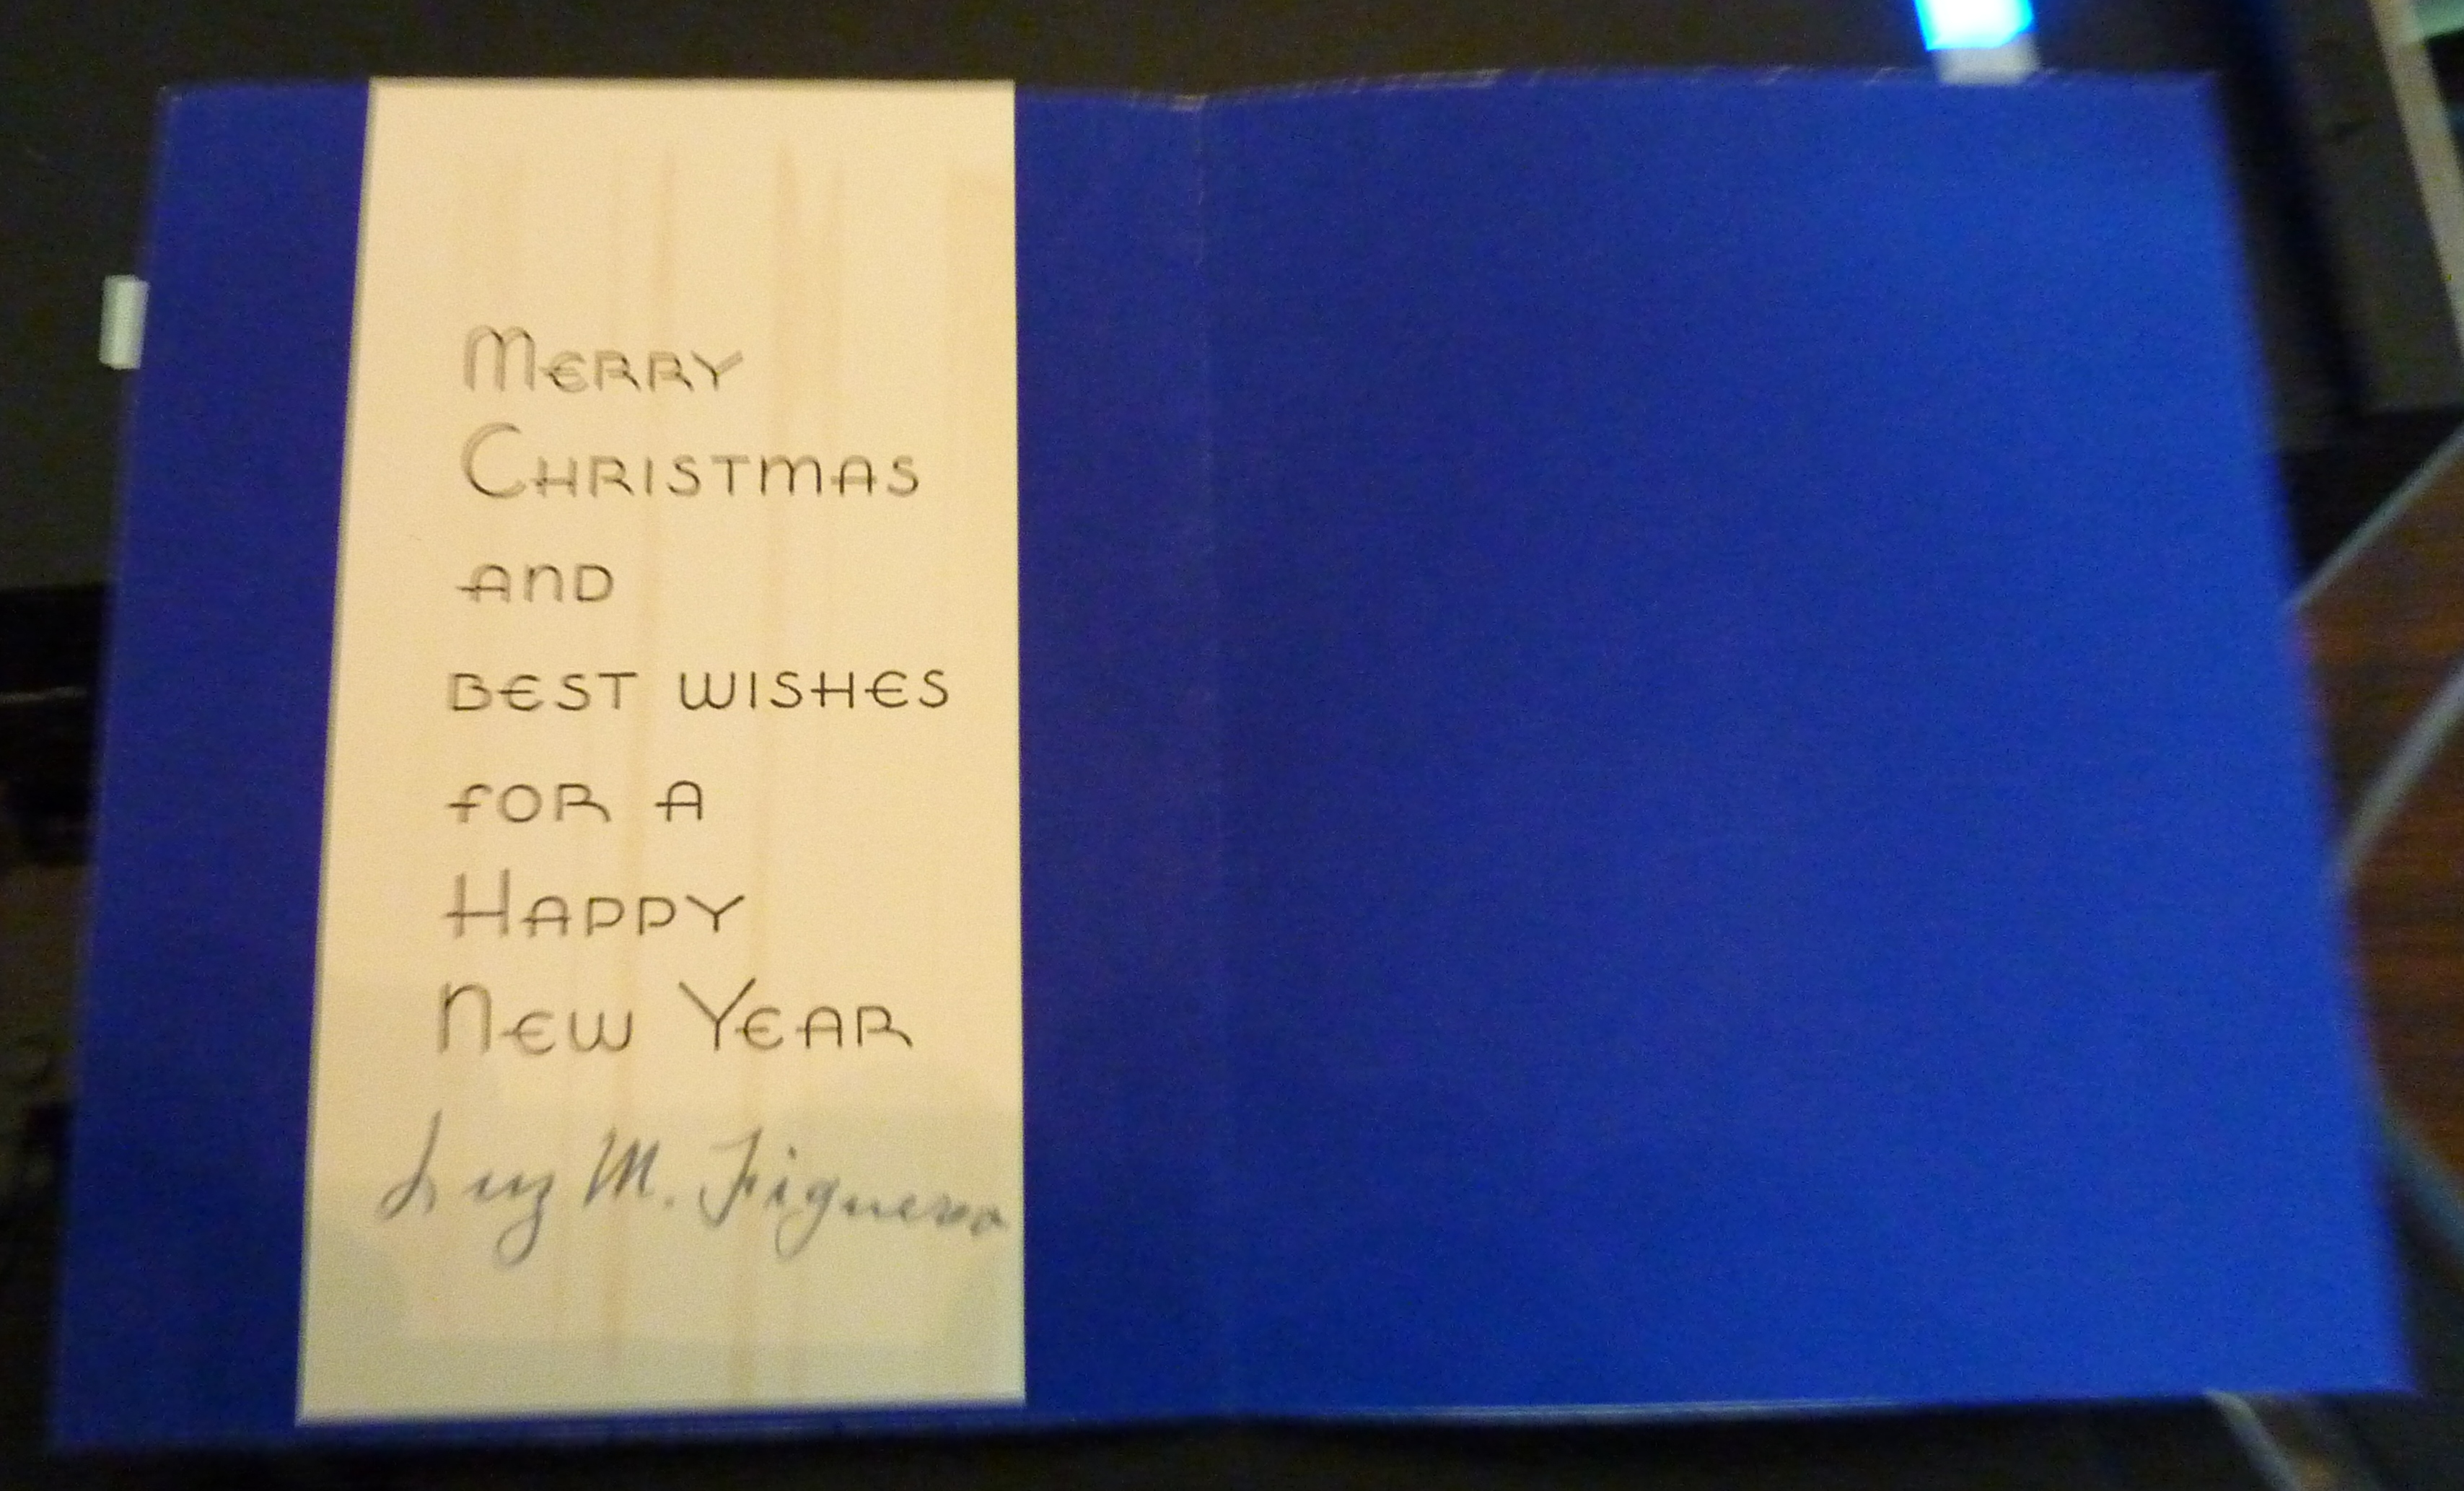 Merry
Christmas
and
best wishes
for a
Happy
New Year
Luz M. Figueroa